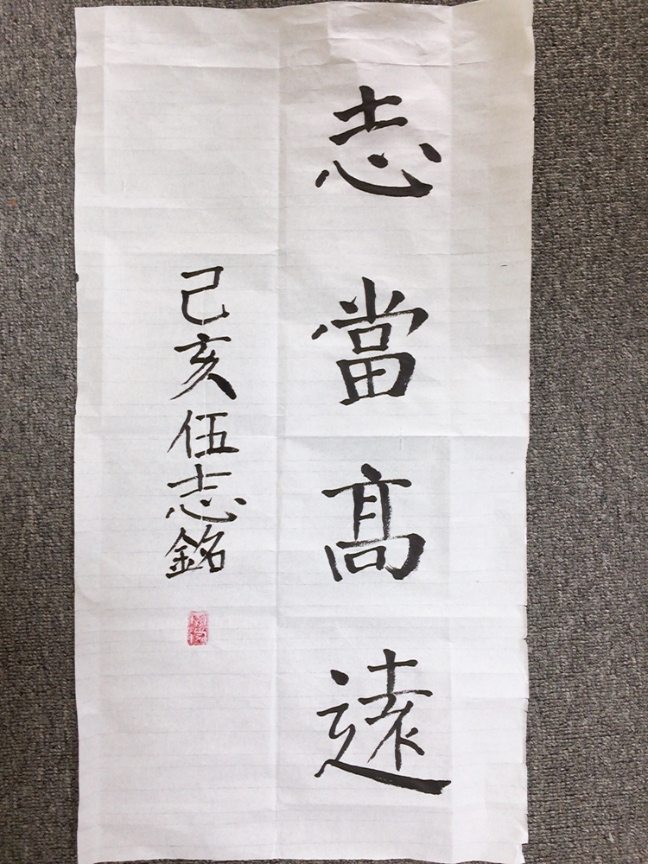 志當髙遠
己亥伍志銘